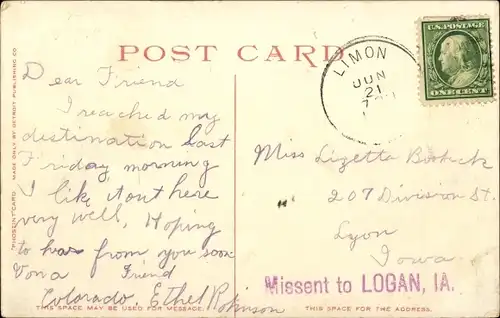 POST CARD
LIMON
JUN
21
U.S. POSTAGE
ONE CENT
Dear Friend
I reached my
destination last
Friday morning
I like it out here
very well, Hoping
to hear from you soon
Vona Friend
Colorado, Ethel Robinson
Miss Lizetta
207 Division St.
Lyon
Iowa
Missent to LOGAN, IA.
THIS SPACE MAY BE USED FOR MESSAGE.
THIS SPACE FOR THE ADDRESS.
"PHOSTINT CARD" MADE ONLY BY DETROIT PUBLISHING CO.